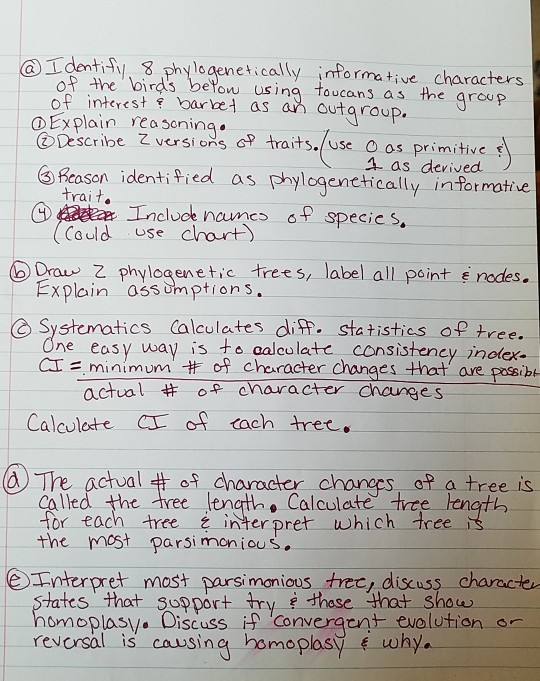 ⓐ Identify 8 phylogenetically informative characters
of the birds below using toucans as the group
of interest & barbet as an outgroup.
① Explain reasoning.
② Describe 2 versions of traits. (use 0 as primitive &
1 as derived)
③ Reason identified as phylogenetically informative
trait.
④ Include names of species.
(Could use chart)
ⓑ Draw 2 phylogenetic trees, label all point & nodes.
Explain assumptions.
ⓒ Systematics calculates diff. statistics of tree.
One easy way is to calculate consistency index.
CI = minimum # of character changes that are possible
actual # of character changes
Calculate CI of each tree.
ⓓ The actual # of character changes of a tree is
called the tree length. Calculate tree length
for each tree & interpret which tree is
the most parsimonious.
ⓔ Interpret most parsimonious tree, discuss character
states that support try & those that show
homoplasy. Discuss if convergent evolution or
reversal is causing homoplasy & why.